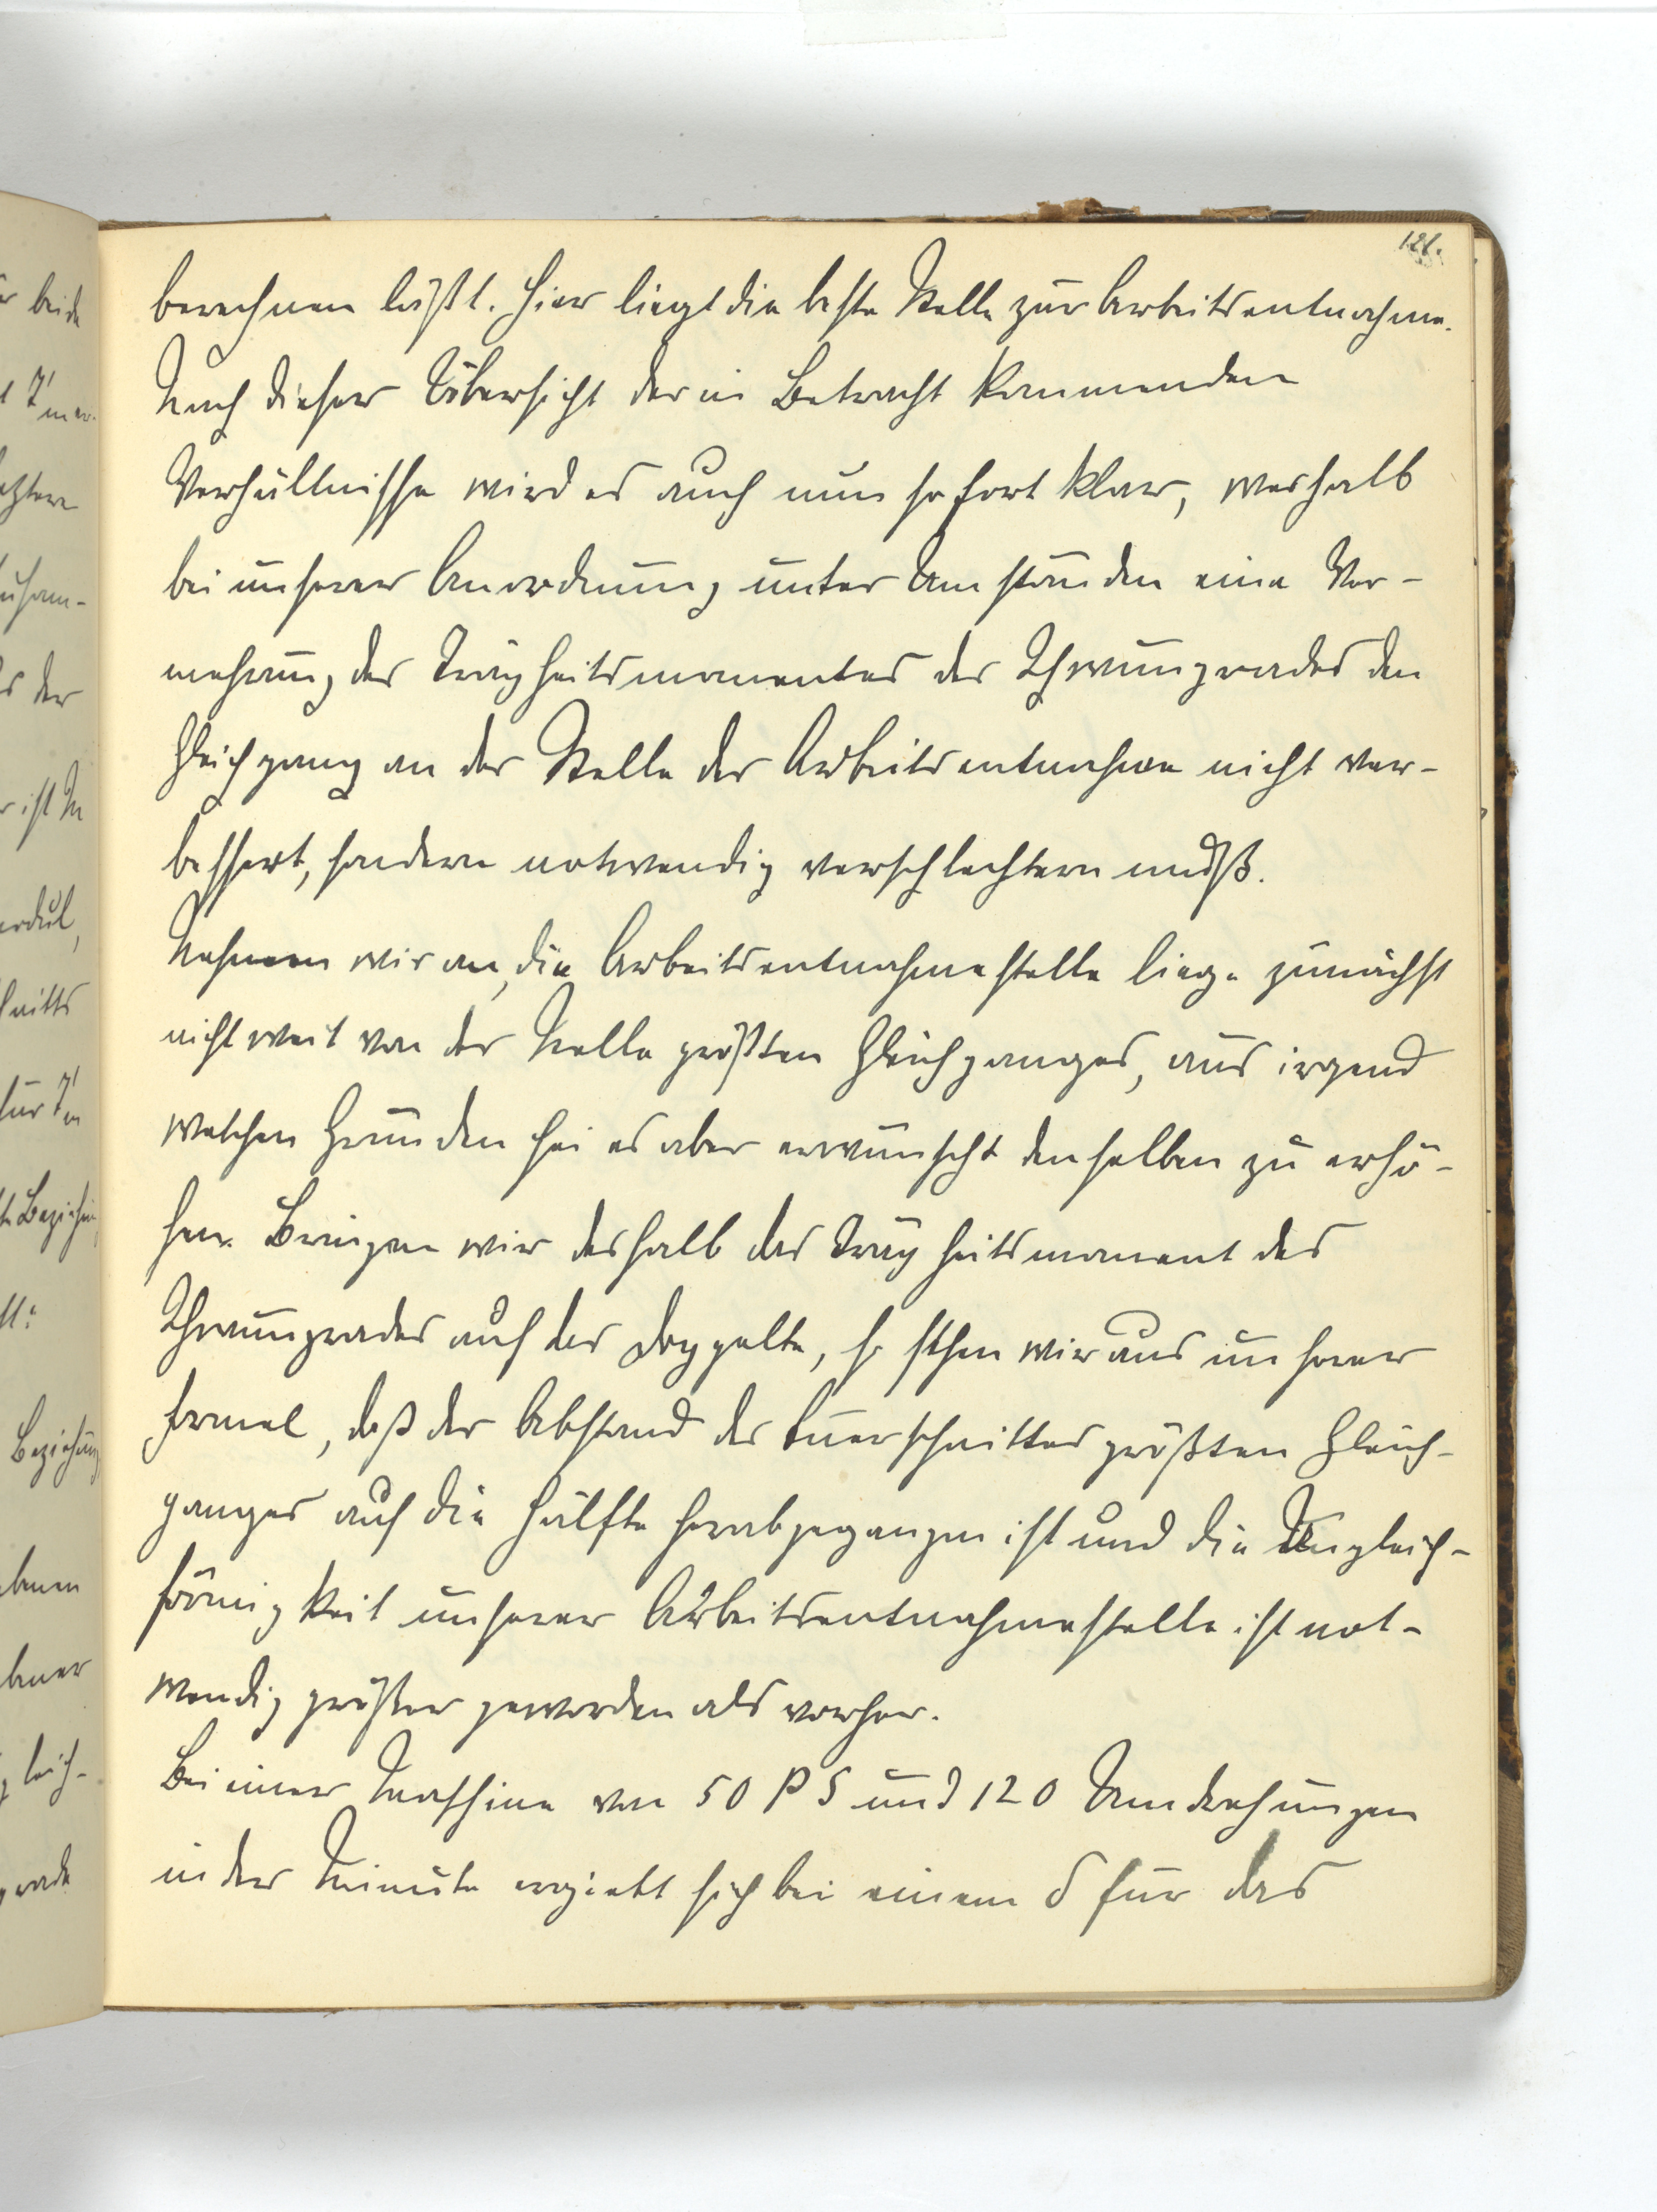 121.
berechnen läßt. Hier liegt die beste Stelle zur Arbeitsentnahme.
Nach dieser Übersicht der in Betracht kommenden
Verhältnisse wird es auch nun sofort klar, weshalb
bei unserer Anordnung unter Umständen eine Ver-
mehrung des Trägheitsmomentes des Schwungrades den
Gleichgang an der Stelle der Arbeitsentnahme nicht ver-
bessert, sondern notwendig verschlechtern muß.
Nehmen wir an, die Arbeitsentnahmestelle liege zunächst
nicht weit von der Stelle größten Gleichganges, aus irgend
welchen Gründen sei es aber erwünscht denselben zu erhö-
hen. Bringen wir deshalb das Trägheitsmoment des
Schwungrades auf das doppelte, so sehen wir aus unserer
Formel, daß der Abstand des Querschnittes größten Gleich-
ganges auf die Hälfte herabgegangen ist und die Ungleich-
förmigkeit unserer Arbeitsentnahmestelle ist not-
wendig größer geworden als vorher.
Bei einer Maschine von 50 PS und 120 Umdrehungen
in der Minute ergiebt sich bei einem δ für das